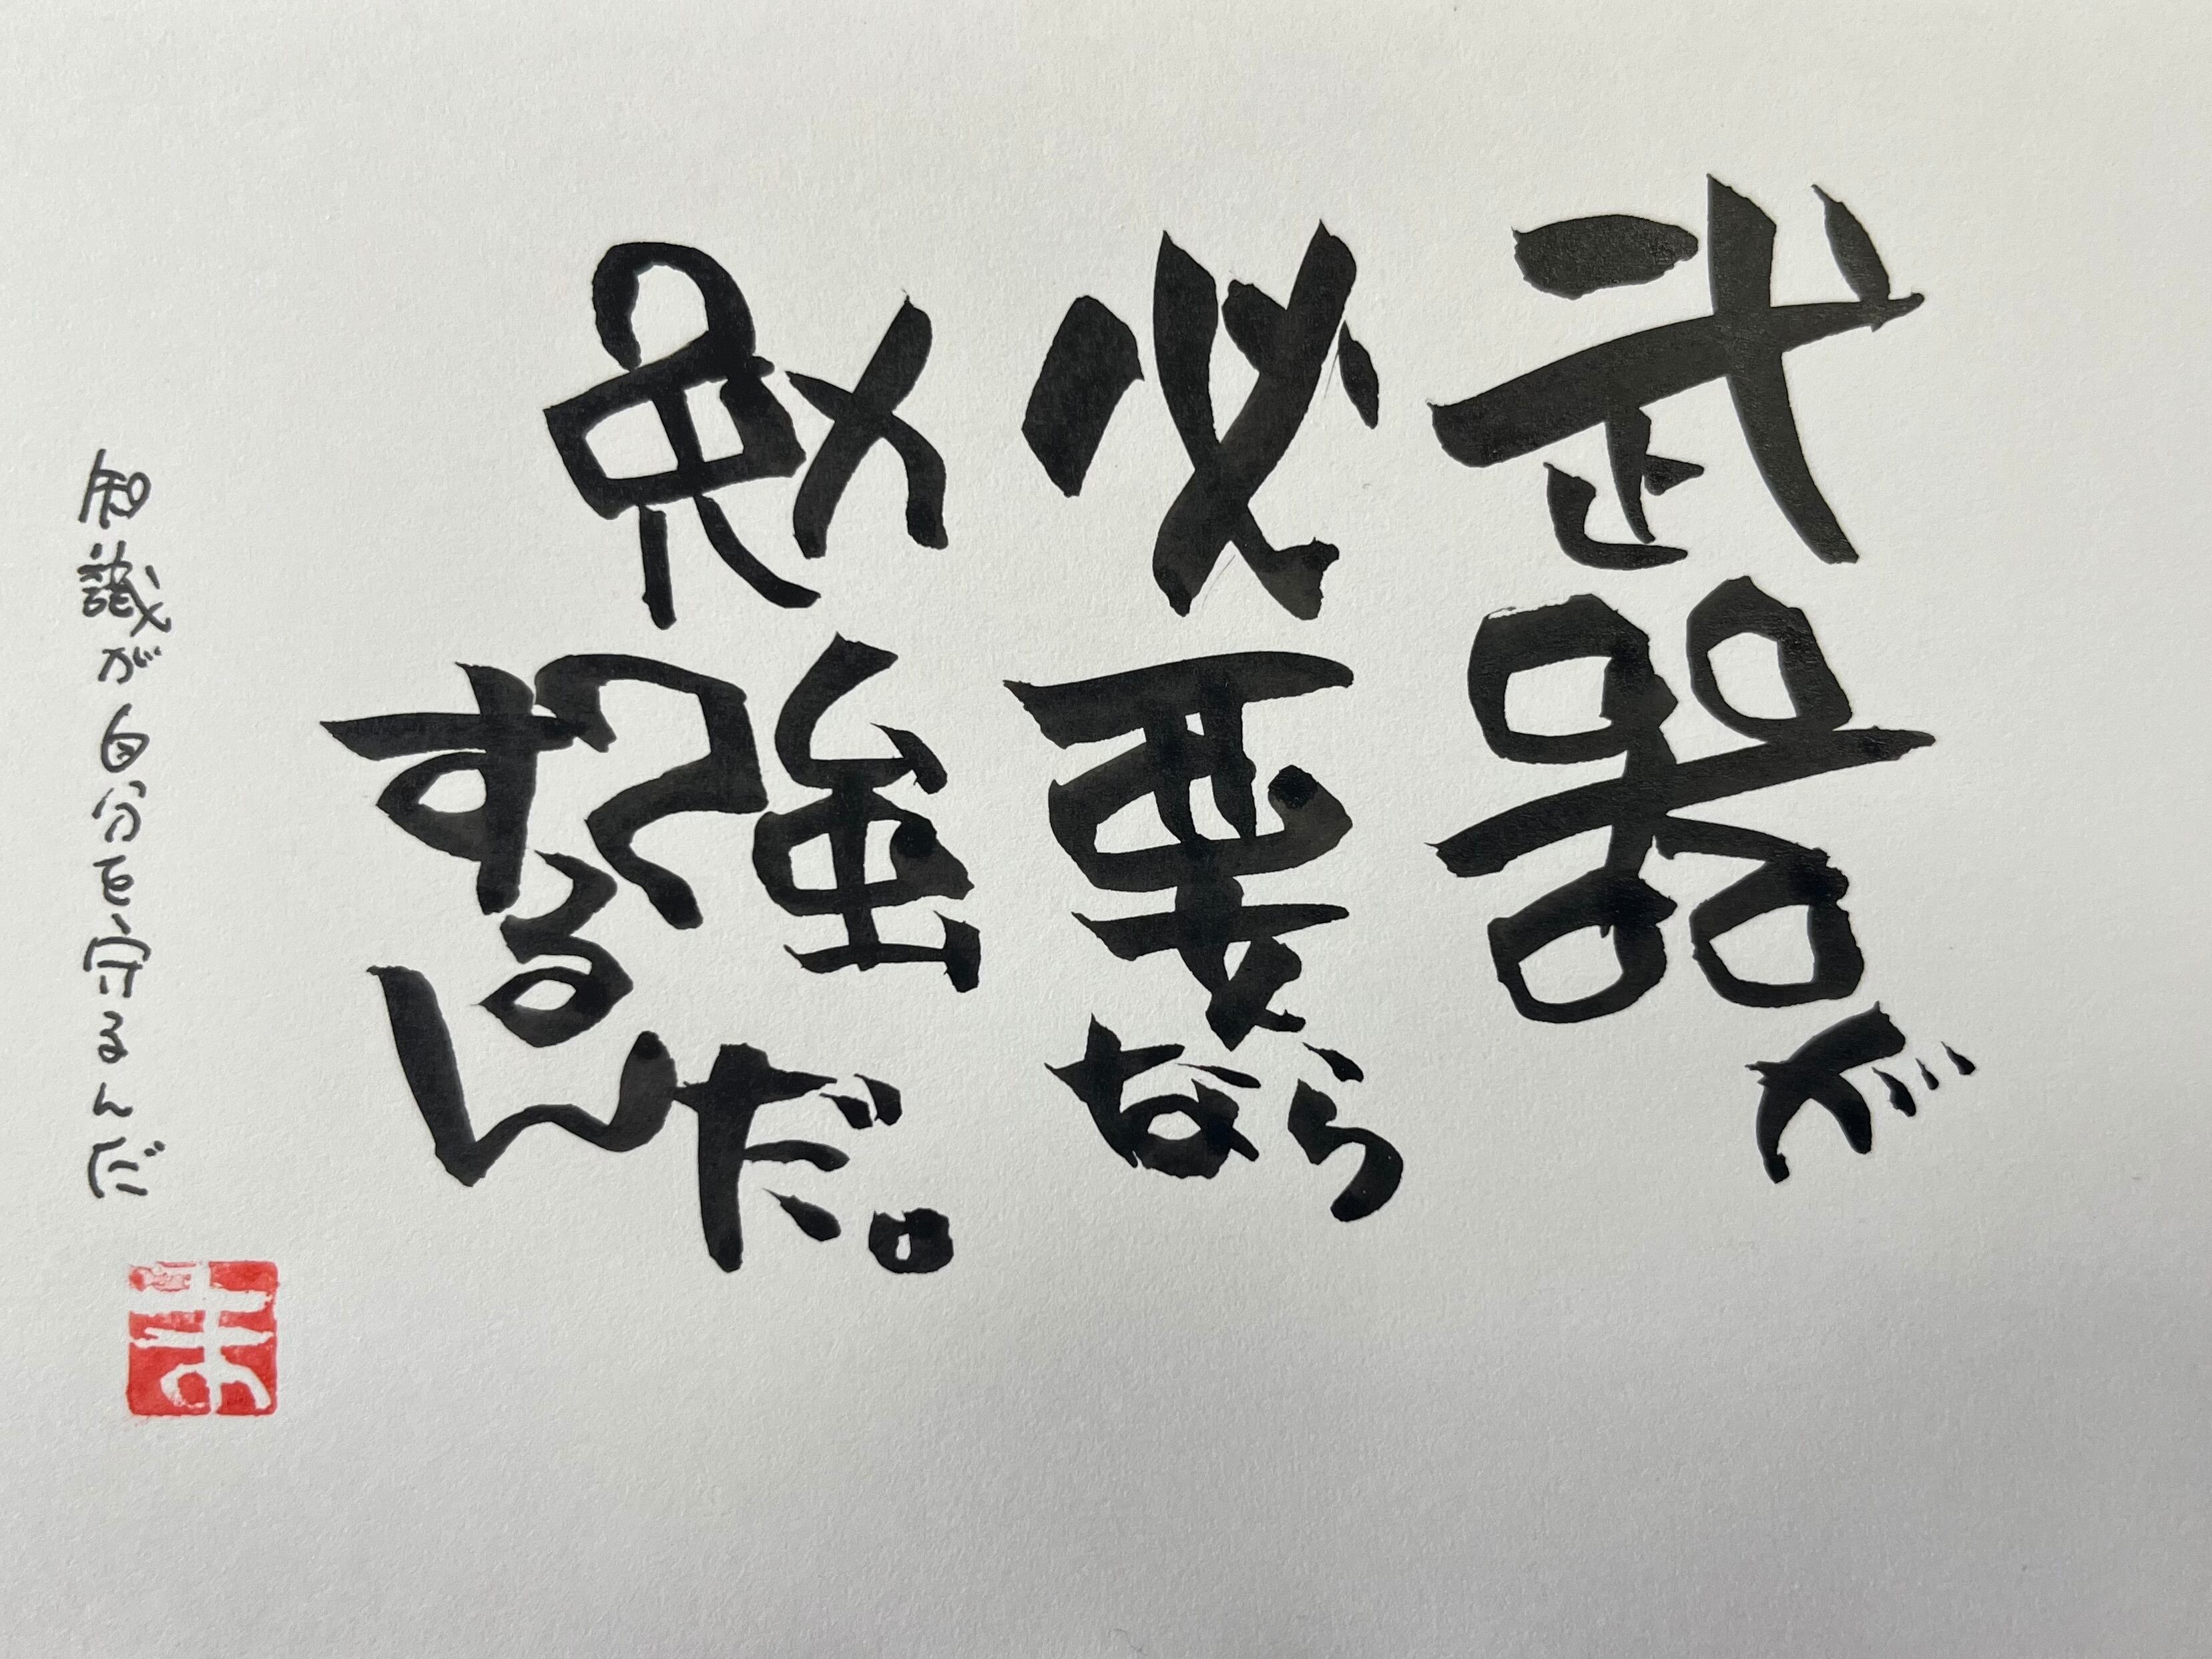 武器が
必要なら
勉強するんだ。
知識が自分を守るんだ